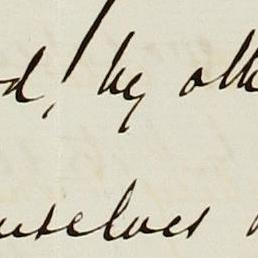 d, by othe
urselves